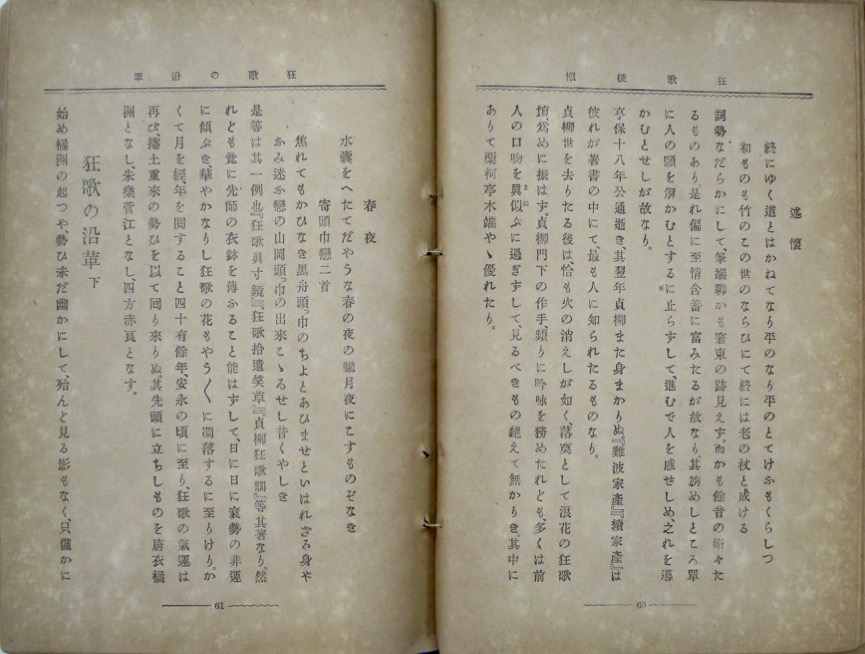 狂歌梗概
述懷
終にゆく道とはかねてなり平のなり平のとてけふもくらしつ
初ものも竹のこの世のならひにて終には老の杖と成ける
詞勢なだらかにして、筆端聊かも窘束の跡見えず、而かも餘音の嫋々た
るものあり。是れ偏に至情含蓄に富みたるが故なり。其詠めしところ單
に人の頤を解かむとするに止らずして、進むで人を感せしめ、之れを導
かむとせしが故なり。
享保十八年公通逝き、其翌年貞柳また身まかりぬ。『難波家產』『續家產』は
彼れが著書の中にて、最も人に知られたるものなり。
貞柳世を去りたる後は、恰も火の消えしが如く、落寞として浪花の狂歌
壇、爲めに振はず。貞柳門下の作手、頻りに吟咏を務めたれども多くは前
人の口吻を眞似ぶに過ぎずして、見るべきもの絕えて無かりき。其中に
ありて栗柯亭木端やゝ優れたり。
60
狂歌の沿革
春夜
水囊をへたてだやうな春の夜の朧月夜にこすものぞなき
寄頭巾戀二首
焦れてもかひなき黑舟頭巾のちよとあひませといはれざる身や
ふみ迷ふ戀の山岡頭巾の出來こゝるせし昔くやしき
是等は其一例也『狂歌眞寸鏡』『狂歌拾遺笑草』『貞柳狂歌訓』等其著なり。然
れども竟に先師の衣鉢を傳ふること能はずして、日に日に衰勢の非運
に傾ぶき、華やかなりし狂歌の花もやう〱に凋落するに至りけり。か
くて月を經、年を閱すること四十有餘年、安永の頃に至り、狂歌の氣運は
再び、捲土重來の勢ひを以て回り來りぬ。其先頭に立ちしものを唐衣橘
洲となし、朱樂菅江となし、四方赤良となす。
狂歌の沿革 下
始め橘洲の起つや、勢ひ未だ幽かにして、殆んど見る影もなく、只僅かに
61